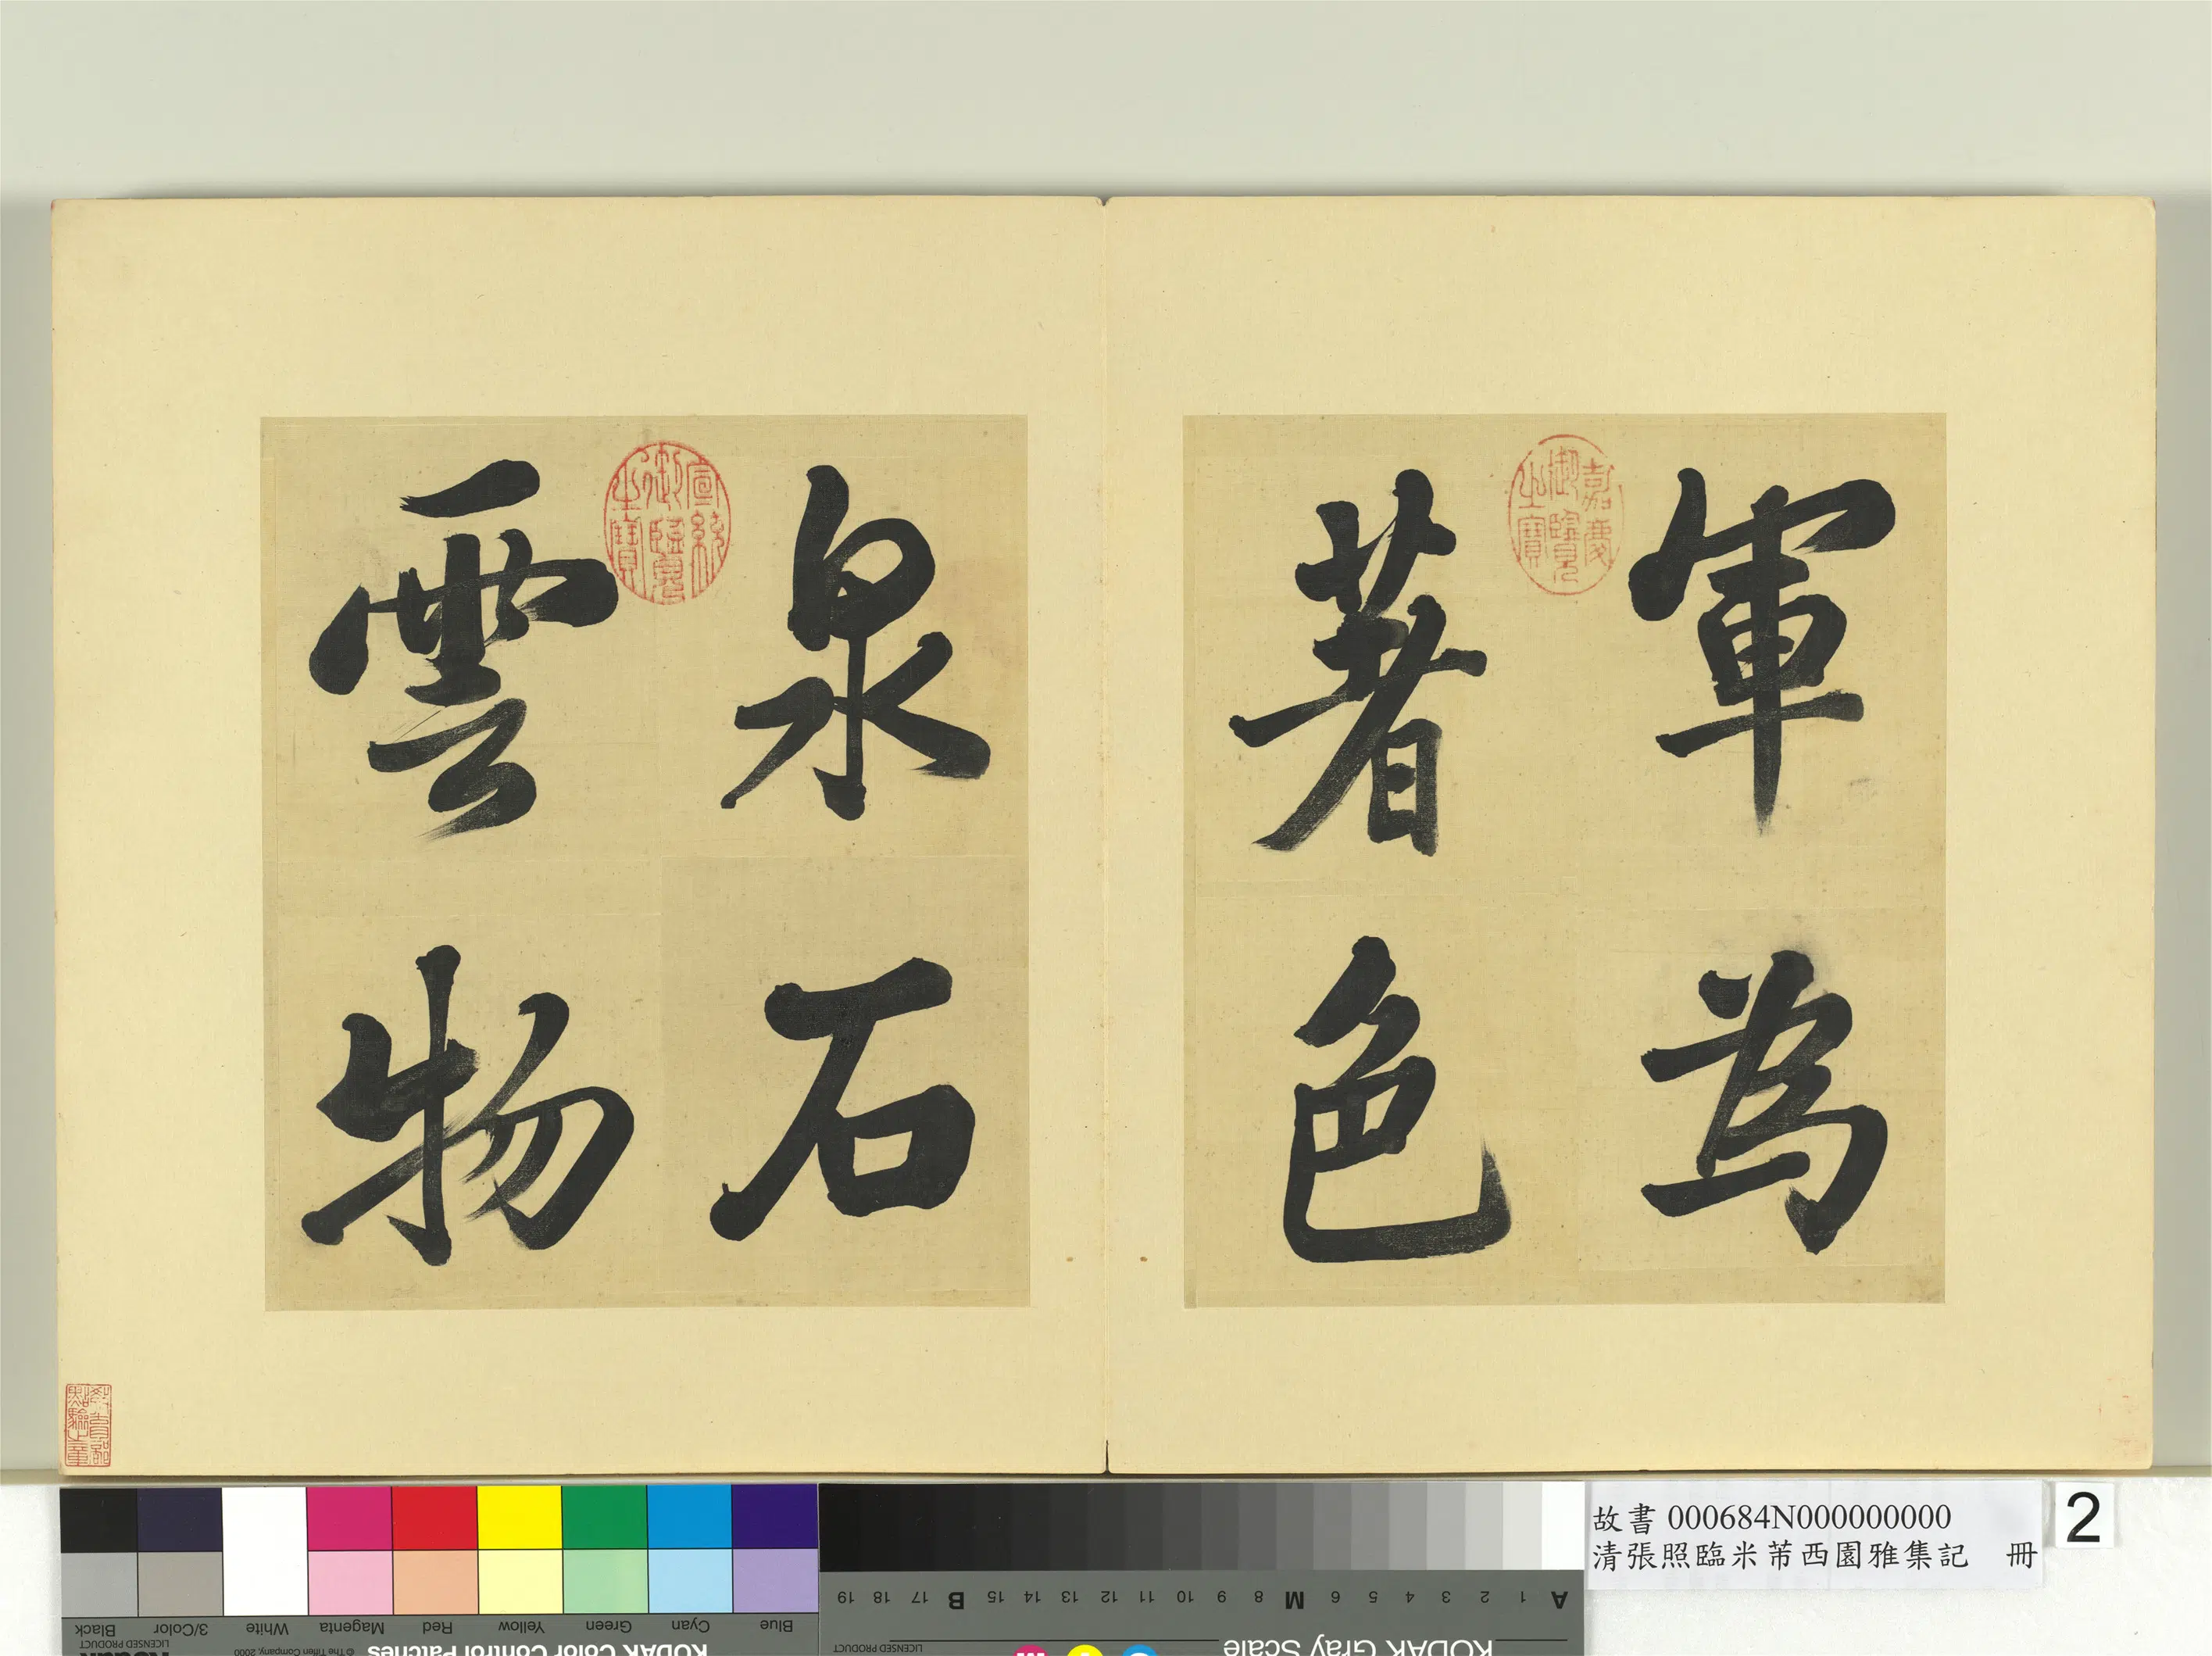 軍為
著色
泉石
雲物
嘉慶御覽之寶
宣統御覽之寶
故書 000684N000000000
清張照臨米芾西園雅集記 冊
2
Black
3/Color
White
Magenta
Red
Yellow
Green
Cyan
Blue
LICENSED PRODUCT
© The Tiffen Company, 2000
KODAK Color Control Patches
Kodak
KODAK Gray Scale
LICENSED PRODUCT
A 1 2 3 4 5 6 M 8 9 10 11 12 13 14 15 B 17 18 19